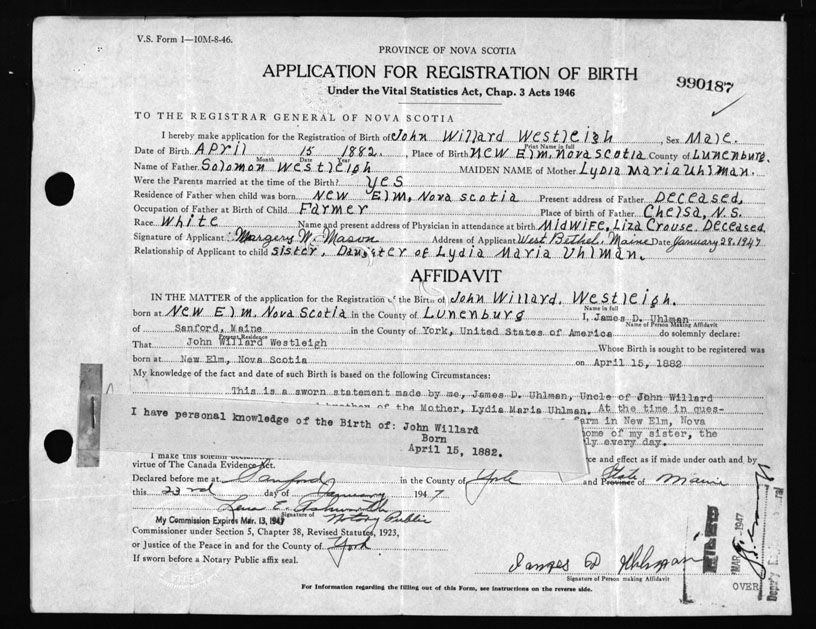 V.S. Form 1—10M-8-46.
PROVINCE OF NOVA SCOTIA
APPLICATION FOR REGISTRATION OF BIRTH
990187
Under the Vital Statistics Act, Chap. 3 Acts 1946
TO THE REGISTRAR GENERAL OF NOVA SCOTIA
I hereby make application for the Registration of Birth of John Willard Westleigh, Sex Male.
Print Name in full
Date of Birth April 15 1882. Place of Birth New Elm, Nova Scotia County of Lunenburg.
Month Date Year
Name of Father Solomon Westleigh MAIDEN NAME of Mother Lydia Maria Uhlman.
Were the Parents married at the time of the Birth? Yes
Residence of Father when child was born New Elm, Nova Scotia Present address of Father Deceased.
Occupation of Father at Birth of Child Farmer Place of birth of Father Chelsa, N.S.
Race White Name and present address of Physician in attendance at birth Midwife, Liza Crouse. Deceased
Signature of Applicant Margery W. Mason Address of Applicant West Bethel, Maine Date January 28, 1947
Relationship of Applicant to child Sister, Daughter of Lydia Maria Uhlman.
AFFIDAVIT
IN THE MATTER of the application for the Registration of the Birth of John Willard. Westleigh.
Name in full
born at New Elm, Nova Scotia in the County of Lunenburg I, James D. Uhlman
Name of Person Making Affidavit
of Sanford, Maine in the County of York, United States of America do solemnly declare:
Residence
That John Willard Westleigh Whose Birth is sought to be registered was
born at New Elm, Nova Scotia on April 15, 1882
My knowledge of the fact and date of such Birth is based on the following Circumstances:
This is a sworn statement made by me, James D. Uhlman, Uncle of John Willard
of the Mother, Lydia Maria Uhlman. At the time in ques-
I have personal knowledge of the Birth of: John Willard
farm in New Elm, Nova
Born
home of my sister, the
April 15, 1882.
every day.
I make this solemn
force and effect as if made under oath and by
virtue of The Canada Evidence Act.
Declared before me at Sanford in the County of York and Province of State Maine
this 23rd day of January 1947
Lena E. Ashworth
Signature of
My Commission Expires Mar. 13, 1947 Notary Public
Commissioner under Section 5, Chapter 38, Revised Statutes, 1923,
or Justice of the Peace in and for the County of York
If sworn before a Notary Public affix seal.
James D Uhlman
Signature of Person making Affidavit
FILED
MAR 1947
Deputy
OVER
For Information regarding the filling out of this Form, see instructions on the reverse side.